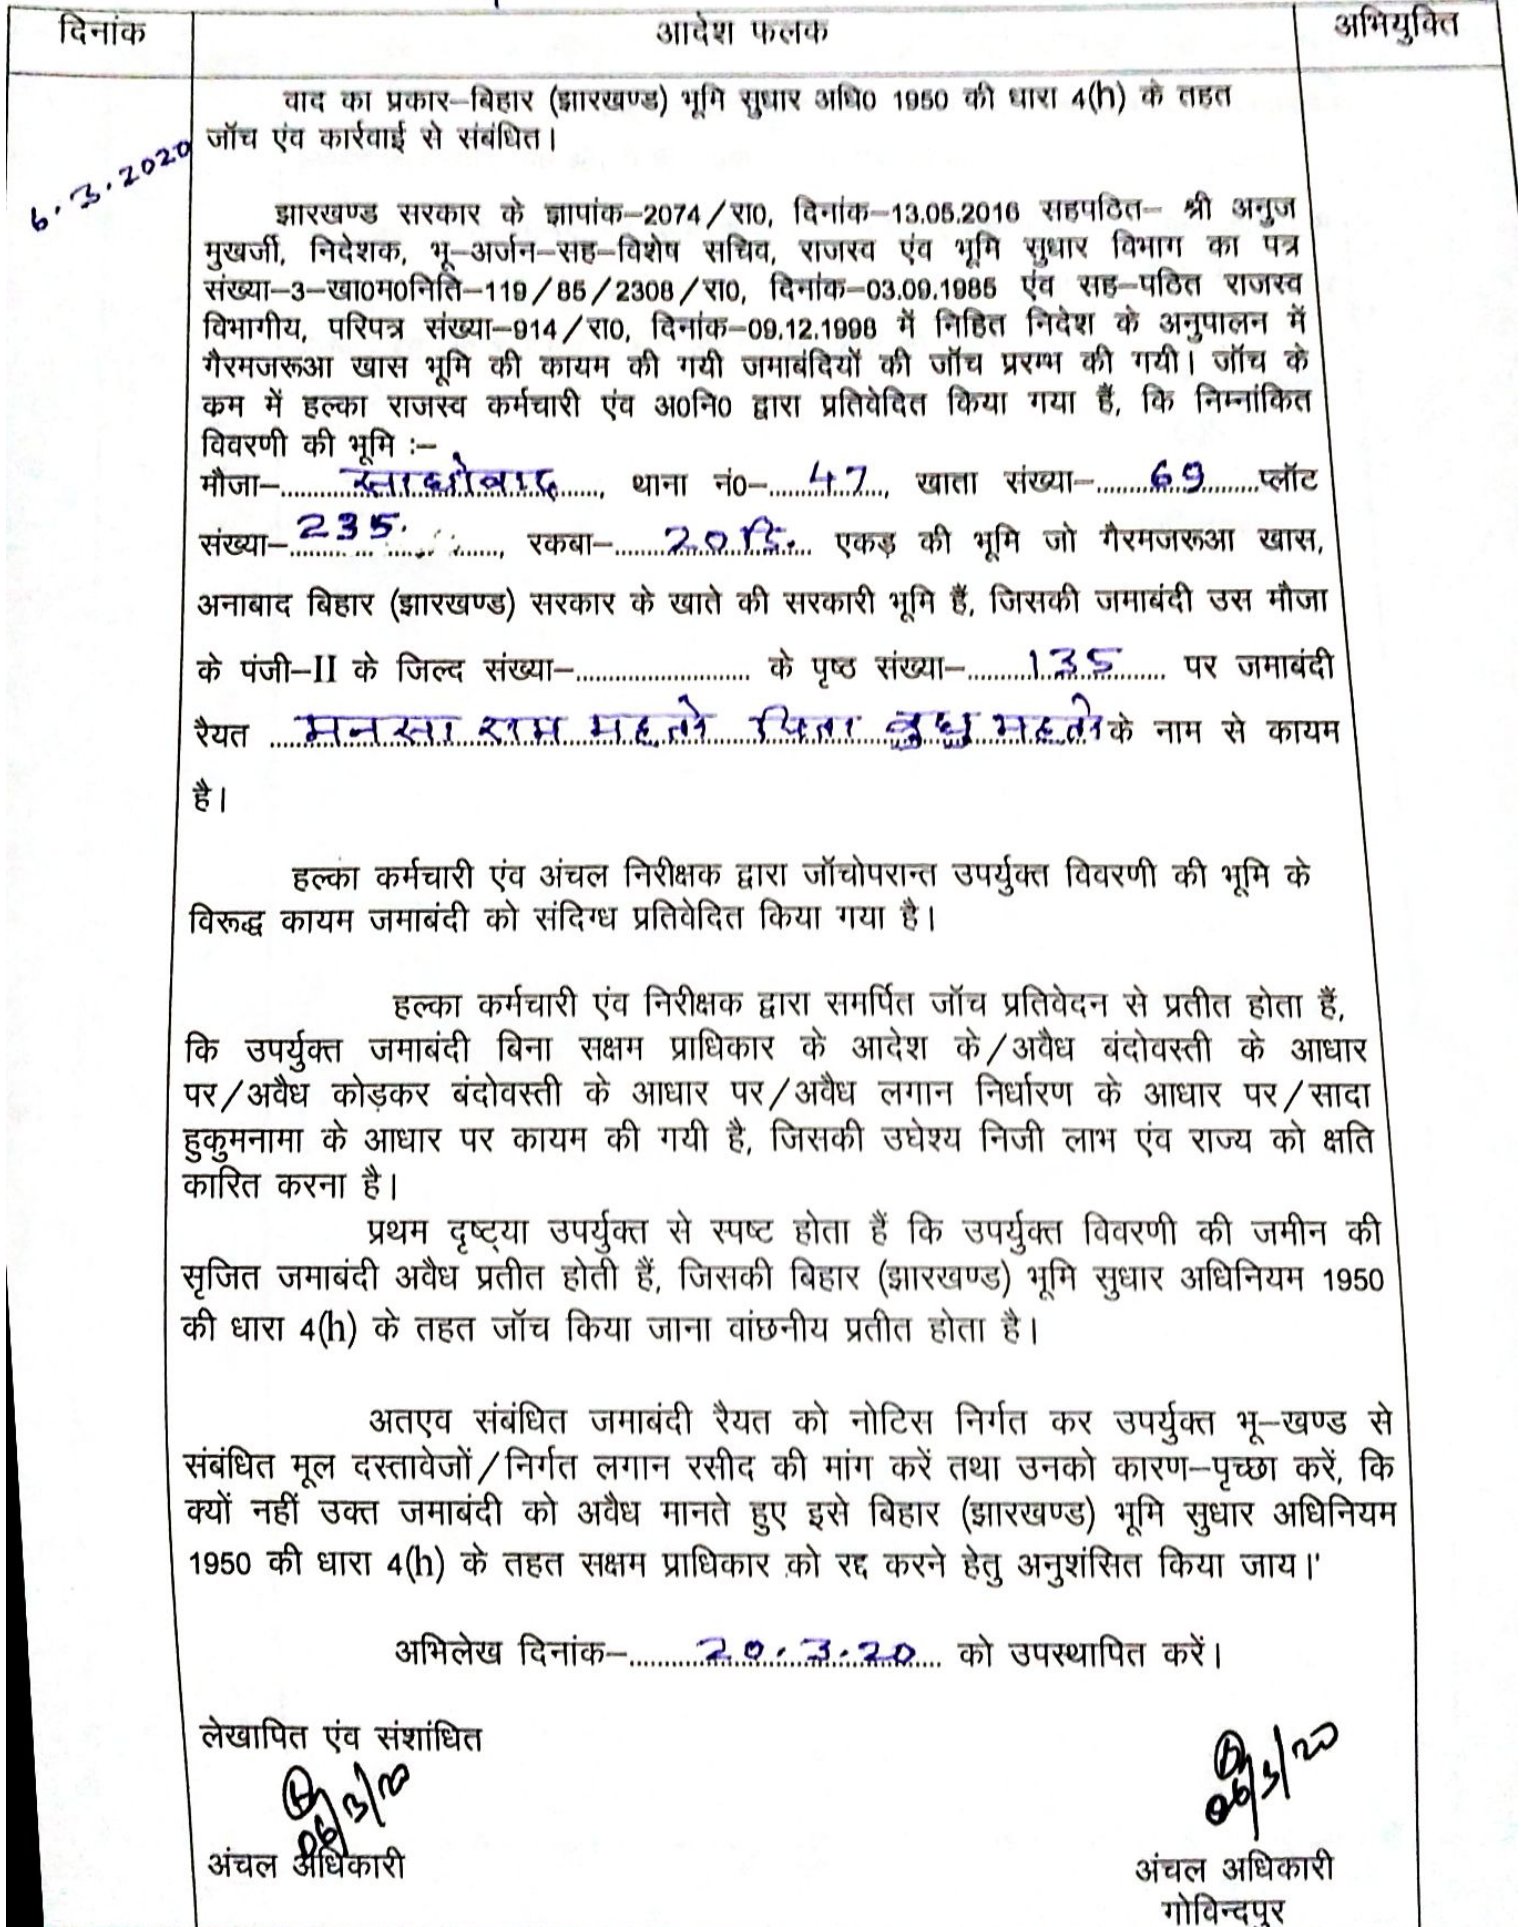 दिनांक आदेश फलक अभियुक्ति
वाद का प्रकार–बिहार (झारखण्ड) भूमि सुधार अधि0 1950 की धारा 4(h) के तहत
जॉच एंव कार्रवाई से संबंधित।
6.3.2020
झारखण्ड सरकार के ज्ञापांक–2074/रा0, दिनांक–13.05.2016 सहपठित– श्री अनुज
मुखर्जी, निदेशक, भू–अर्जन–सह–विशेष सचिव, राजस्व एंव भूमि सुधार विभाग का पत्र
संख्या–3–खा0म0निति–119/85/2308/रा0, दिनांक–03.09.1985 एंव सह–पठित राजस्व
विभागीय, परिपत्र संख्या–914/रा0, दिनांक–09.12.1998 में निहित निदेश के अनुपालन में
गैरमजरूआ खास भूमि की कायम की गयी जमाबंदियों की जॉच प्ररम्भ की गयी। जॉच के
कम में हल्का राजस्व कर्मचारी एंव अ0नि0 द्वारा प्रतिवेदित किया गया हैं, कि निम्नांकित
विवरणी की भूमि :–
मौजा–.......... ........., थाना नं0–.....47....., खाता संख्या–.....69.....प्लॉट
संख्या–235..........., रकबा–.....20 डि...... एकड़ की भूमि जो गैरमजरूआ खास,
अनाबाद बिहार (झारखण्ड) सरकार के खाते की सरकारी भूमि हैं, जिसकी जमाबंदी उस मौजा
के पंजी–II के जिल्द संख्या–.......................... के पृष्ठ संख्या–.........135......... पर जमाबंदी
रैयत .....मनसा राम महतो पिता बुधु महतो के नाम से कायम
है।
हल्का कर्मचारी एंव अंचल निरीक्षक द्वारा जॉचोपरान्त उपर्युक्त विवरणी की भूमि के
विरूद्ध कायम जमाबंदी को संदिग्ध प्रतिवेदित किया गया है।
हल्का कर्मचारी एंव निरीक्षक द्वारा समर्पित जॉच प्रतिवेदन से प्रतीत होता हैं,
कि उपर्युक्त जमाबंदी बिना सक्षम प्राधिकार के आदेश के/अवैध बंदोवस्ती के आधार
पर/अवैध कोड़कर बंदोवस्ती के आधार पर/अवैध लगान निर्धारण के आधार पर/सादा
हुकुमनामा के आधार पर कायम की गयी है, जिसकी उघेश्य निजी लाभ एंव राज्य को क्षति
कारित करना है।
प्रथम दृष्ट्या उपर्युक्त से स्पष्ट होता हैं कि उपर्युक्त विवरणी की जमीन की
सृजित जमाबंदी अवैध प्रतीत होती हैं, जिसकी बिहार (झारखण्ड) भूमि सुधार अधिनियम 1950
की धारा 4(h) के तहत जॉच किया जाना वांछनीय प्रतीत होता है।
अतएव संबंधित जमाबंदी रैयत को नोटिस निर्गत कर उपर्युक्त भू–खण्ड से
संबंधित मूल दस्तावेजों/निर्गत लगान रसीद की मांग करें तथा उनको कारण–पृच्छा करें, कि
क्यों नहीं उक्त जमाबंदी को अवैध मानते हुए इसे बिहार (झारखण्ड) भूमि सुधार अधिनियम
1950 की धारा 4(h) के तहत सक्षम प्राधिकार को रद्द करने हेतु अनुशंसित किया जाय।'
अभिलेख दिनांक–........20.3.20... को उपस्थापित करें।
लेखापित एंव संशांधित
06/3/20 06/3/20
अंचल अधिकारी अंचल अधिकारी
गोविन्दपुर